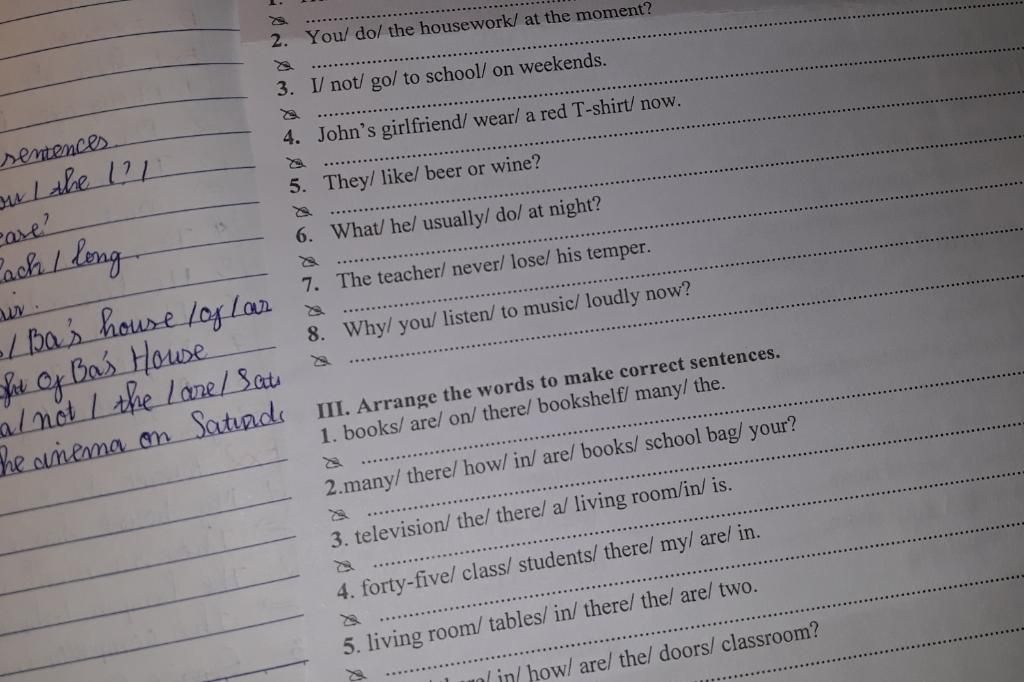 2. You/ do/ the housework/ at the moment?
3. I/ not/ go/ to school/ on weekends.
4. John's girlfriend/ wear/ a red T-shirt/ now.
5. They/ like/ beer or wine?
6. What/ he/ usually/ do/ at night?
7. The teacher/ never/ lose/ his temper.
8. Why/ you/ listen/ to music/ loudly now?
III. Arrange the words to make correct sentences.
1. books/ are/ on/ there/ bookshelf/ many/ the.
2.many/ there/ how/ in/ are/ books/ school bag/ your?
3. television/ the/ there/ a/ living room/in/ is.
4. forty-five/ class/ students/ there/ my/ are/ in.
5. living room/ tables/ in/ there/ the/ are/ two.
in/ how/ are/ the/ doors/ classroom?
sentences
/ the / ? /
/ long
/ Ba's house /of /
of Ba's House
/ not / the / are/
cinema on